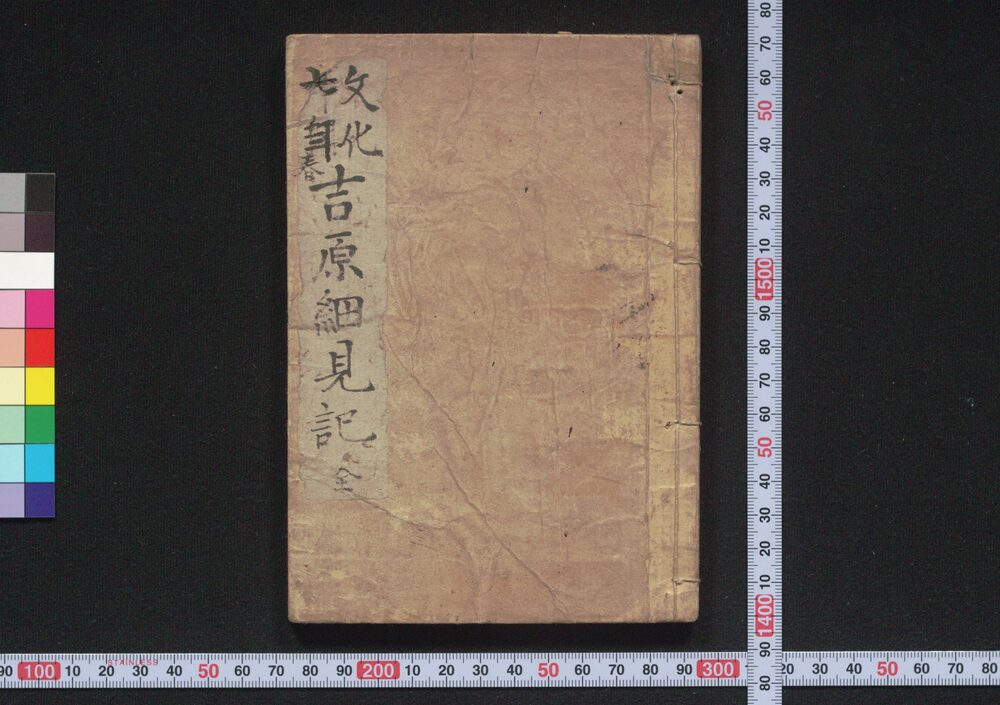 文化
年春
吉原細見記 全
80
70
60
50
40
30
20
10
1500
90
80
70
60
50
40
30
20
10
1400
90
80
90 100 10 20 30 40 50 60 70 80 90 200 10 20 30 40 50 60 70 80 90 300 20 30 40 50 60 70 80
STAINLESS